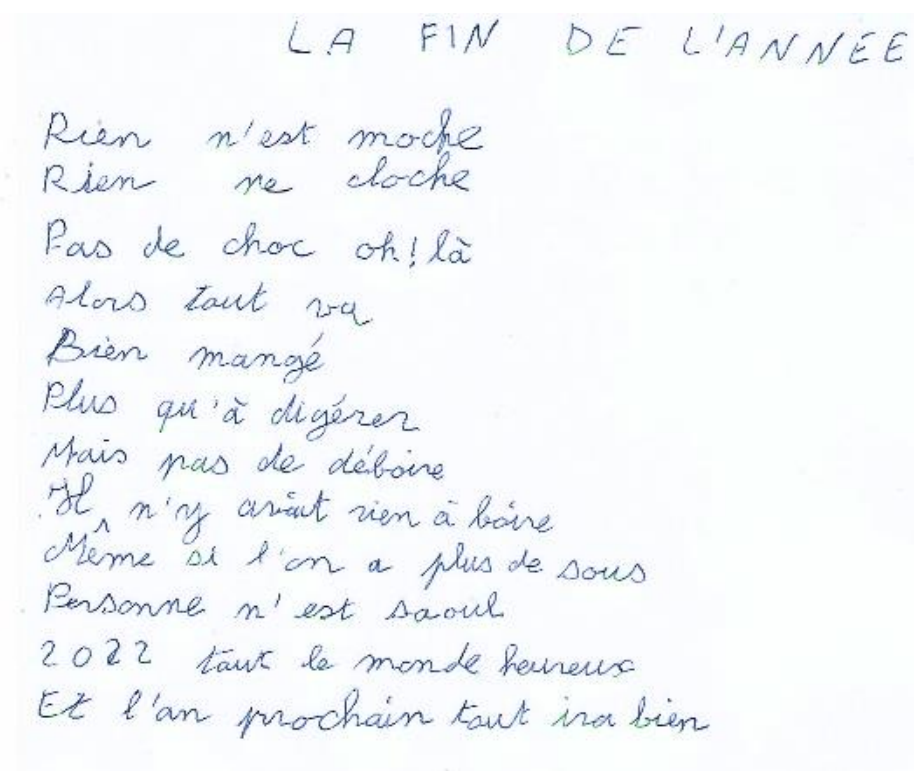 LA FIN DE L'ANNEE
Rien n'est moche
Rien ne cloche
Pas de choc oh! là
Alors tout va
Bien mangé
Plus qu'à digérer
Mais pas de déboire
Il n'y avait rien à boire
Même si l'on a plus de sous
Personne n'est saoul
2022 tout le monde heureux
Et l'an prochain tout ira bien